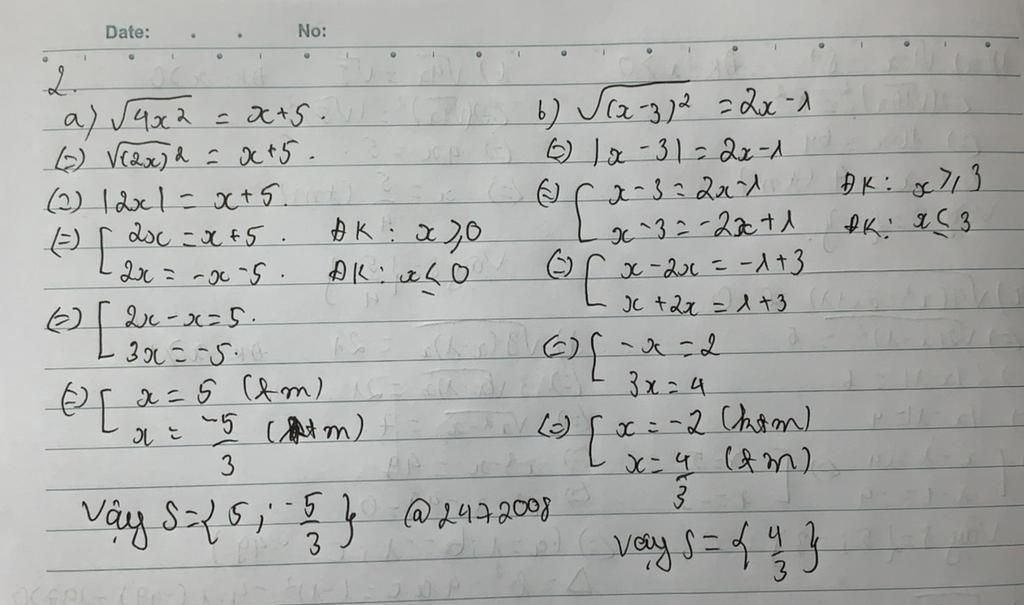 Date: . . No:
2.
a) √4x² = x+5.
(=) √(2x)² = x+5.
(=) |2x| = x+5.
(=) [ 2x = x+5. ĐK: x ⩾ 0
2x = -x-5. ĐK: x ≤ 0
(=) [ 2x - x = 5.
3x = -5.
(=) [ x = 5 (tm)
x = -5/3 (tm)
Vậy S = { 5 ; -5/3 } @2472008
b) √(x-3)² = 2x-1
(=) |x-3| = 2x-1
(=) [ x-3 = 2x-1 ĐK: x ⩾ 3
x-3 = -2x+1 ĐK: x ≤ 3
(=) [ x-2x = -1+3
x+2x = 1+3
(=) [ -x = 2
3x = 4
(=) [ x = -2 (ktm)
x = 4/3 (tm)
Vậy S = { 4/3 }